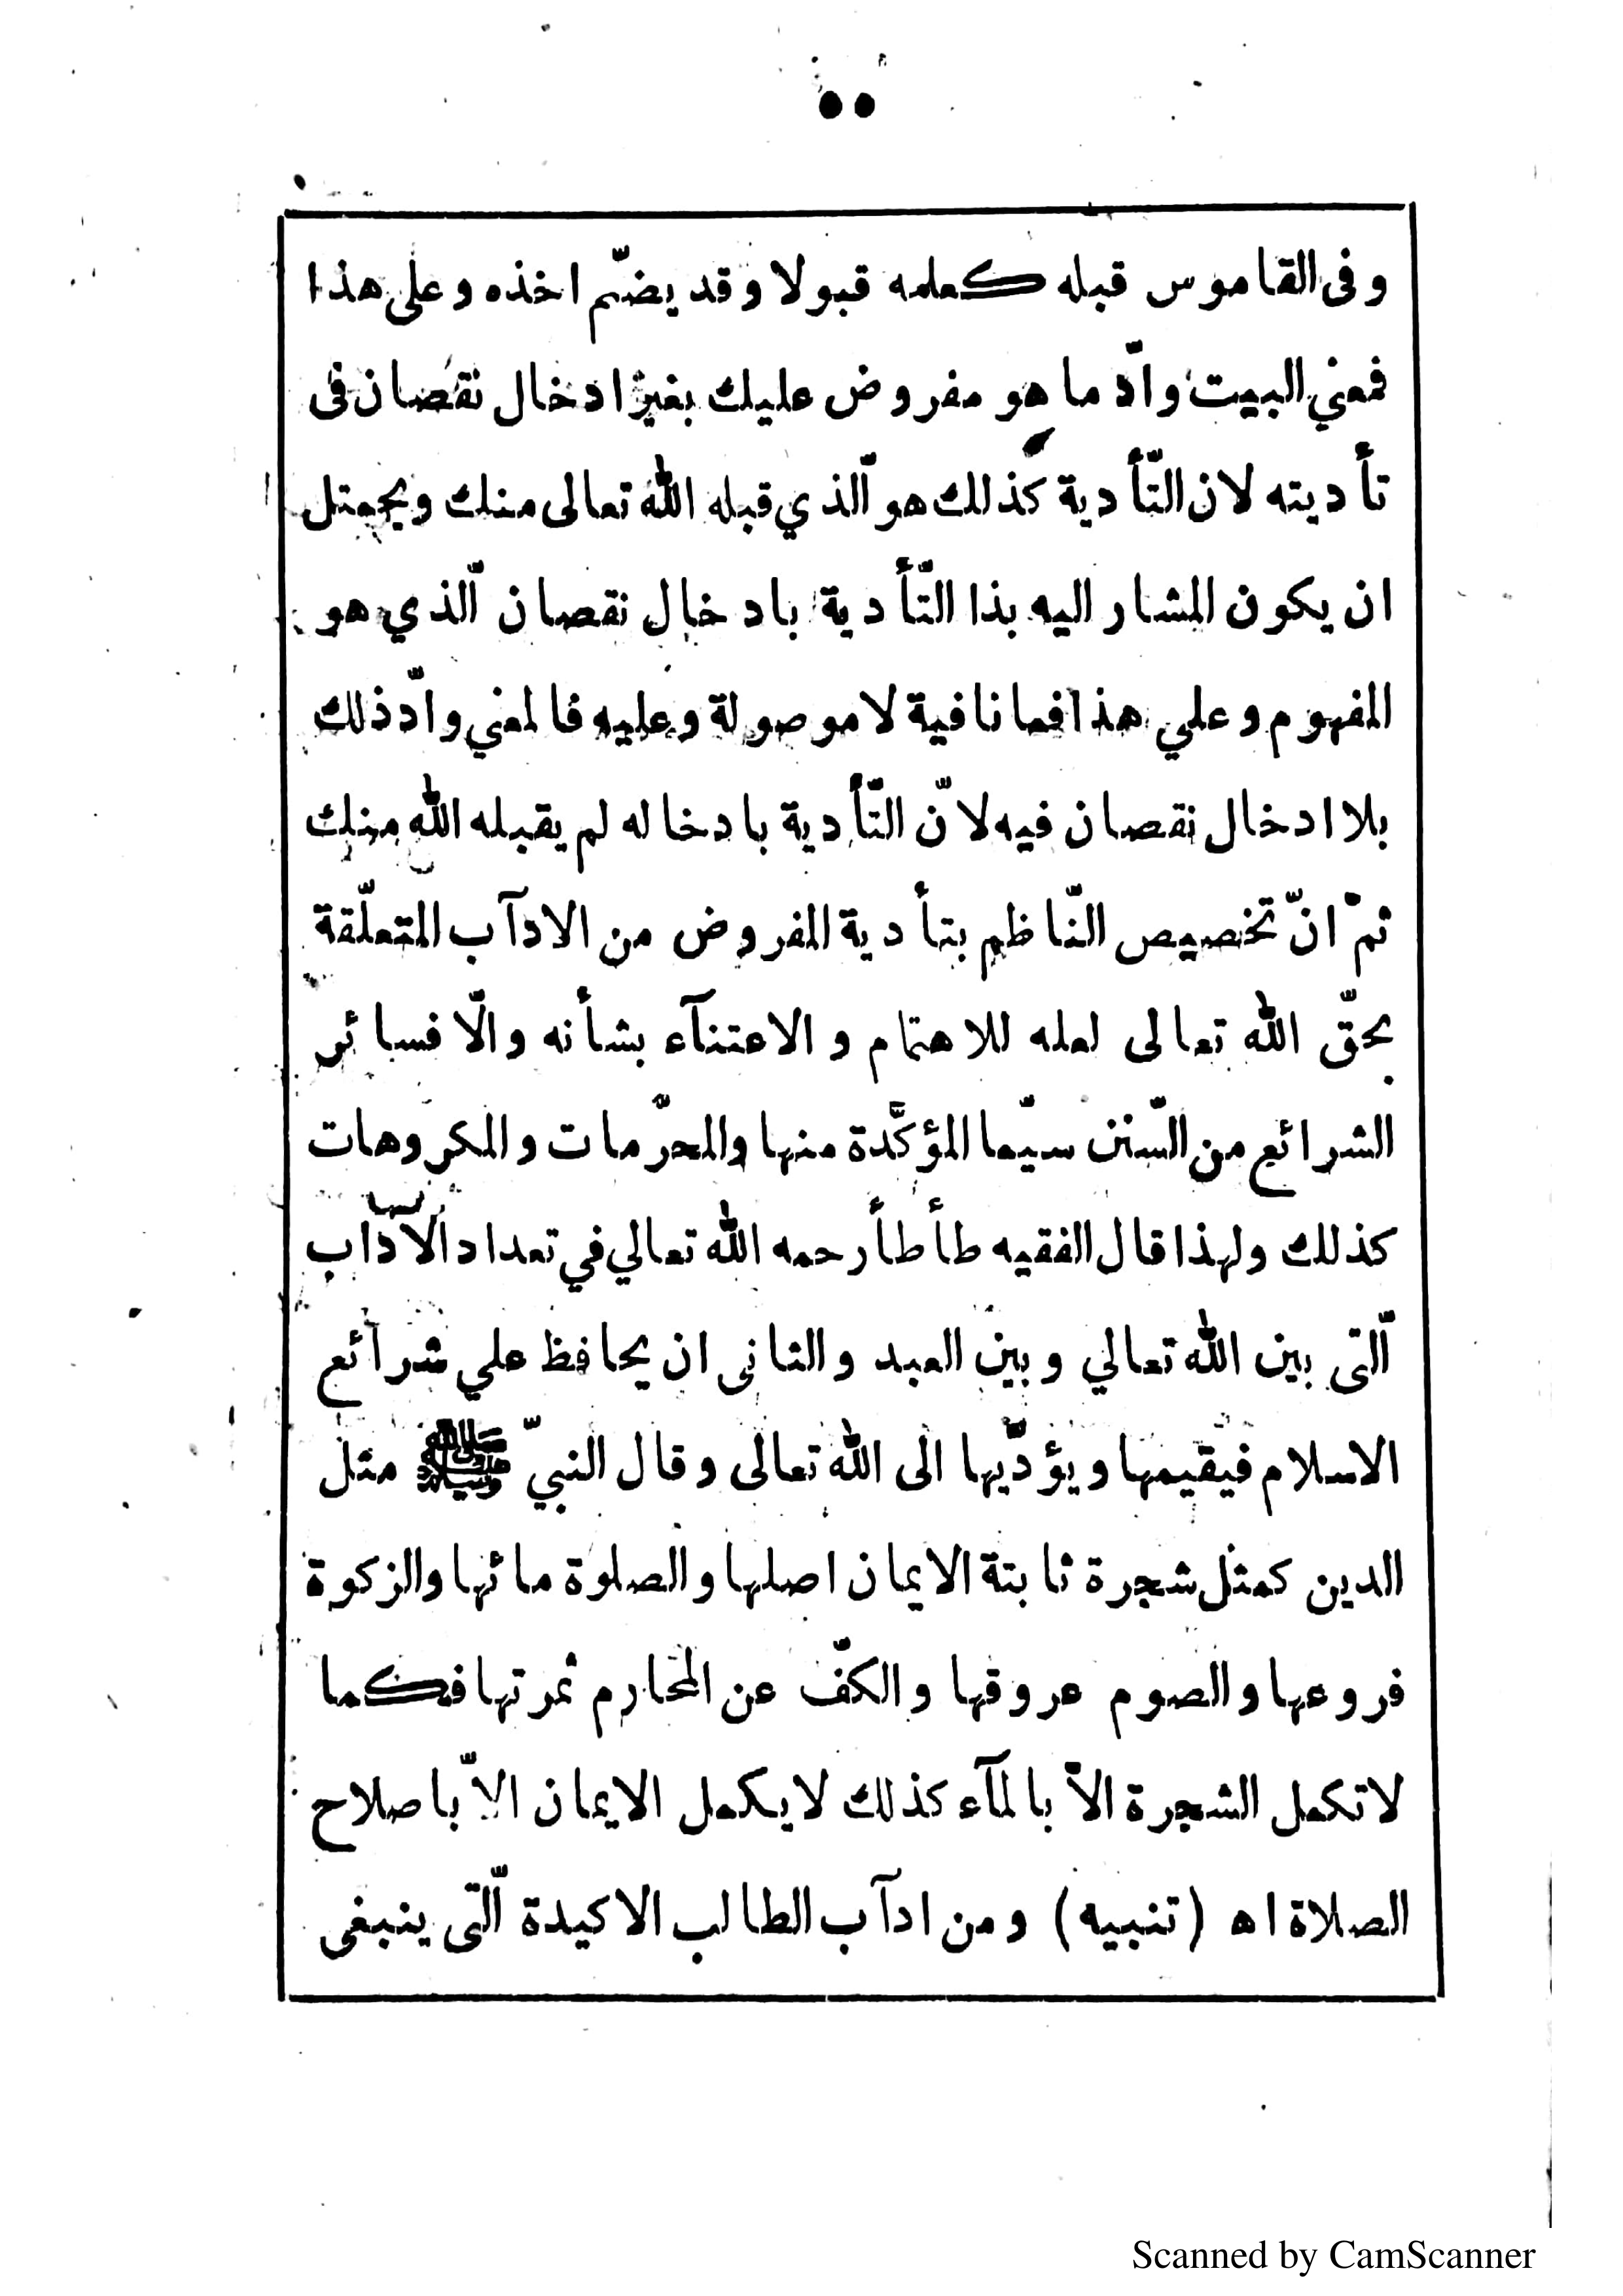 ٥٥
وفى القاموس قبله كعلمه قبولا وقد يضمّ اخذه وعلى هذا
فمعني البيت وادّ ما هو مفروض عليك بغير ادخال نقصان فى
تأديته لان التّأدية كذلك هو الّذي قبله الله تعالى منك ويحتمل
ان يكون المشار اليه بذا التّأدية بادخال نقصان الّذي هو
المفهوم وعلي هذا فما نافية لا موصولة وعليه فالمعني وادّ ذلك
بلا ادخال نقصان فيه لانّ التّأدية بادخاله لم يقبله الله منك
ثمّ انّ تخصيص النّاظم بتأدية المفروض من الادآب المتعلّقة
بحقّ الله تعالى لعله للاهتمام والاعتنآء بشأنه والّا فسائر
الشرائع من السّنن سيّما المؤكّدة منها والمحرّمات والمكروهات
كذلك ولهذا قال الفقيه طأطأ رحمه الله تعالي في تعداد الآداب
الّتى بين الله تعالي وبين العبد والثانى ان يحافظ علي شرائع
الاسلام فيقيمها ويؤدّيها الى الله تعالى وقال النبيّ ﷺ مثل
الدين كمثل شجرة ثابتة الايمان اصلها والصلوة مائها والزكوة
فروعها والصوم عروقها والكفّ عن المحارم ثمرتها فكما
لا تكمل الشجرة الّا بالمآء كذلك لا يكمل الايمان الّا باصلاح
الصلاة اه (تنبيه) ومن ادآب الطالب الاكيدة الّتى ينبغى
Scanned by CamScanner